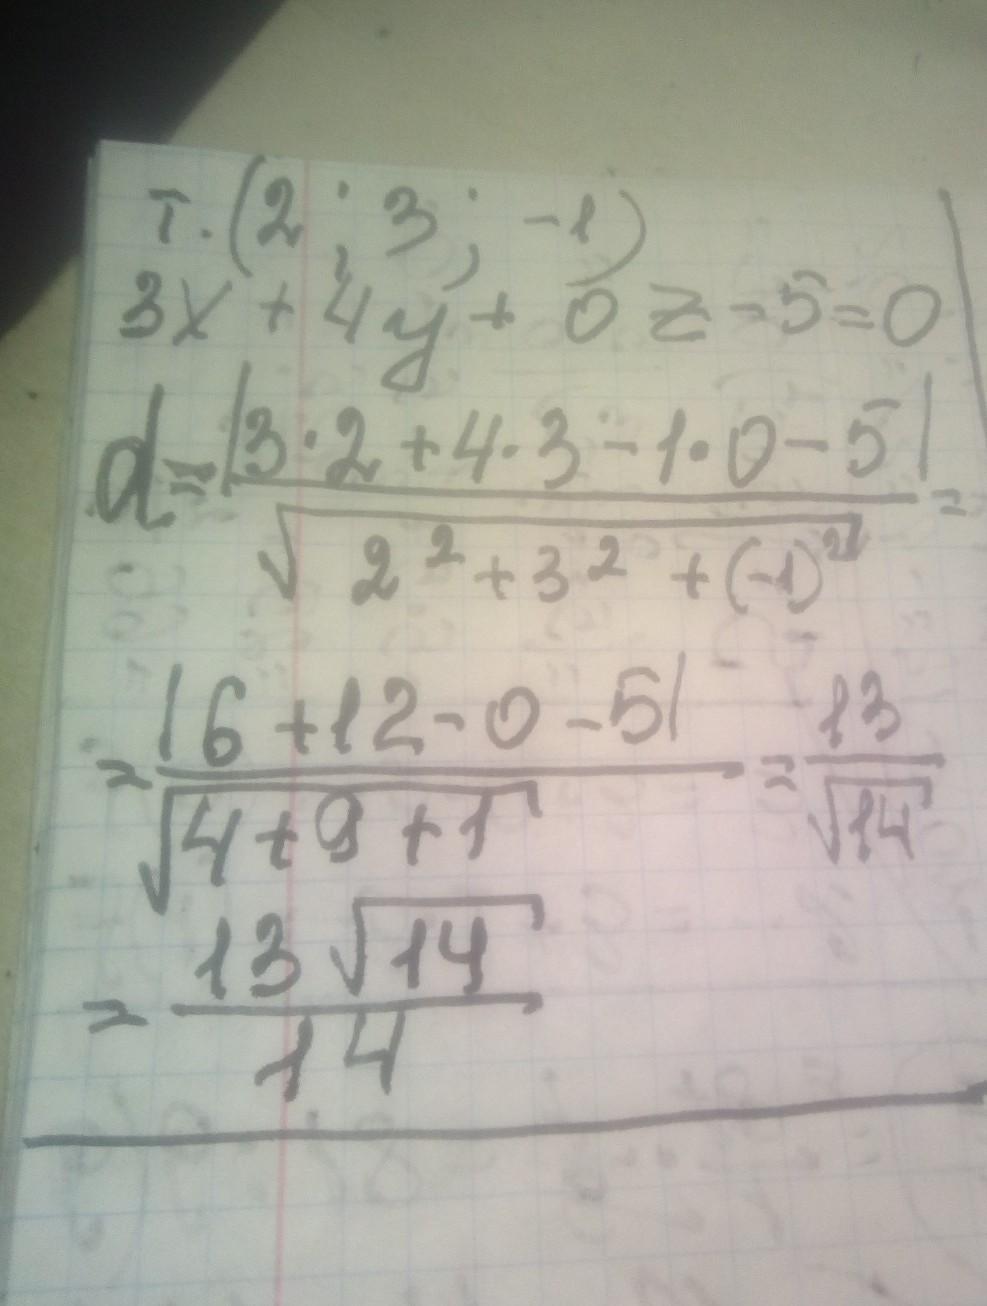 т. (2; 3; -1)
3x + 4y + 0z - 5 = 0
d = |3·2 + 4·3 - 1·0 - 5| / √(2² + 3² + (-1)²) =
= |6 + 12 - 0 - 5| / √(4 + 9 + 1) = 13 / √14
= 13√14 / 14